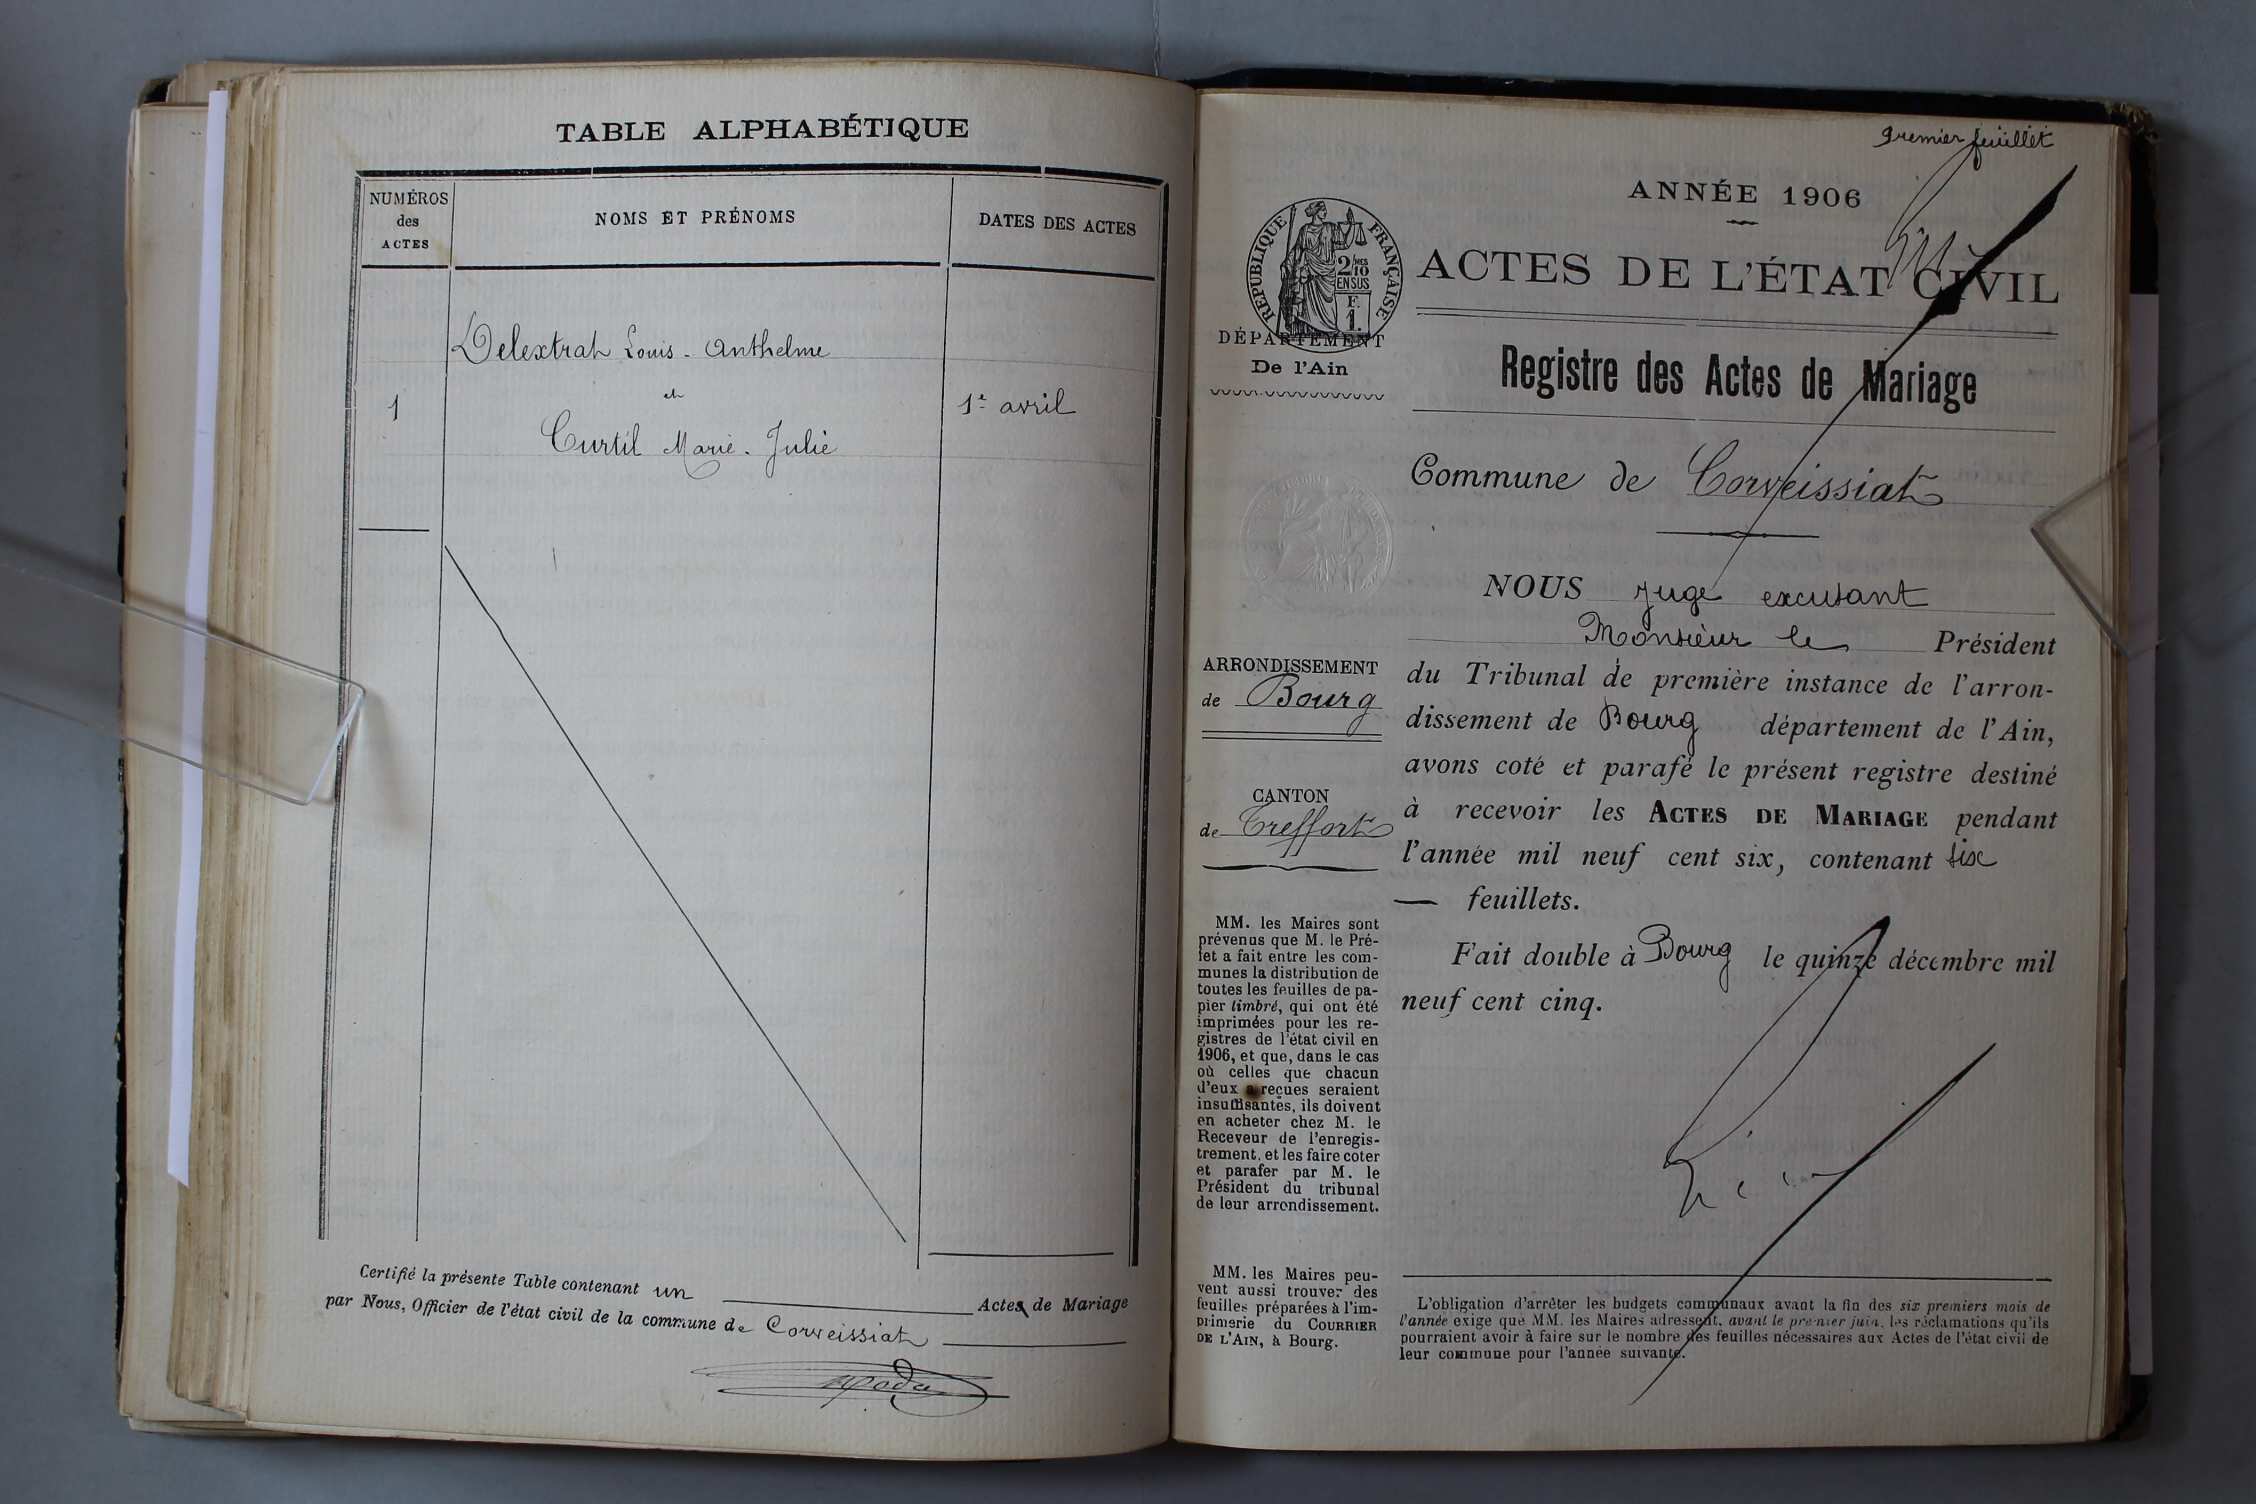 TABLE ALPHABÉTIQUE
NUMÉROS
des
ACTES
NOMS ET PRÉNOMS
DATES DES ACTES
Delextrat Louis - Anthelme
1
et
1er avril
Curtil Marie - Julie
Certifié la présente Table contenant un Actes de Mariage
par Nous, Officier de l'état civil de la commune de Corveissiat
premier feuillet
ANNÉE 1906
ACTES DE L'ÉTAT CIVIL
RÉPUBLIQUE FRANÇAISE
2/10 MES
EN SUS
F.
1.
DÉPARTEMENT
De l'Ain
Registre des Actes de Mariage
Commune de Corveissiat
NOUS juge excusant
Monsieur le Président
du Tribunal de première instance de l'arron-
dissement de Bourg département de l'Ain,
avons coté et parafé le présent registre destiné
à recevoir les ACTES DE MARIAGE pendant
l'année mil neuf cent six, contenant six
— feuillets.
Fait double à Bourg le quinze décembre mil
neuf cent cinq.
ARRONDISSEMENT
de Bourg
CANTON
de Treffort
MM. les Maires sont
prévenus que M. le Pré-
fet a fait entre les com-
munes la distribution de
toutes les feuilles de pa-
pier timbré, qui ont été
imprimées pour les re-
gistres de l'état civil en
1906, et que, dans le cas
où celles que chacun
d'eux a reçues seraient
insuffisantes, ils doivent
en acheter chez M. le
Receveur de l'enregis-
trement, et les faire coter
et parafer par M. le
Président du tribunal
de leur arrondissement.
MM. les Maires peu-
vent aussi trouver des
feuilles préparées à l'im-
primerie du COURRIER
DE L'AIN, à Bourg.
L'obligation d'arrêter les budgets communaux avant la fin des six premiers mois de
l'année exige que MM. les Maires adressent, avant le premier juin, les réclamations qu'ils
pourraient avoir à faire sur le nombre des feuilles nécessaires aux Actes de l'état civil de
leur commune pour l'année suivante.